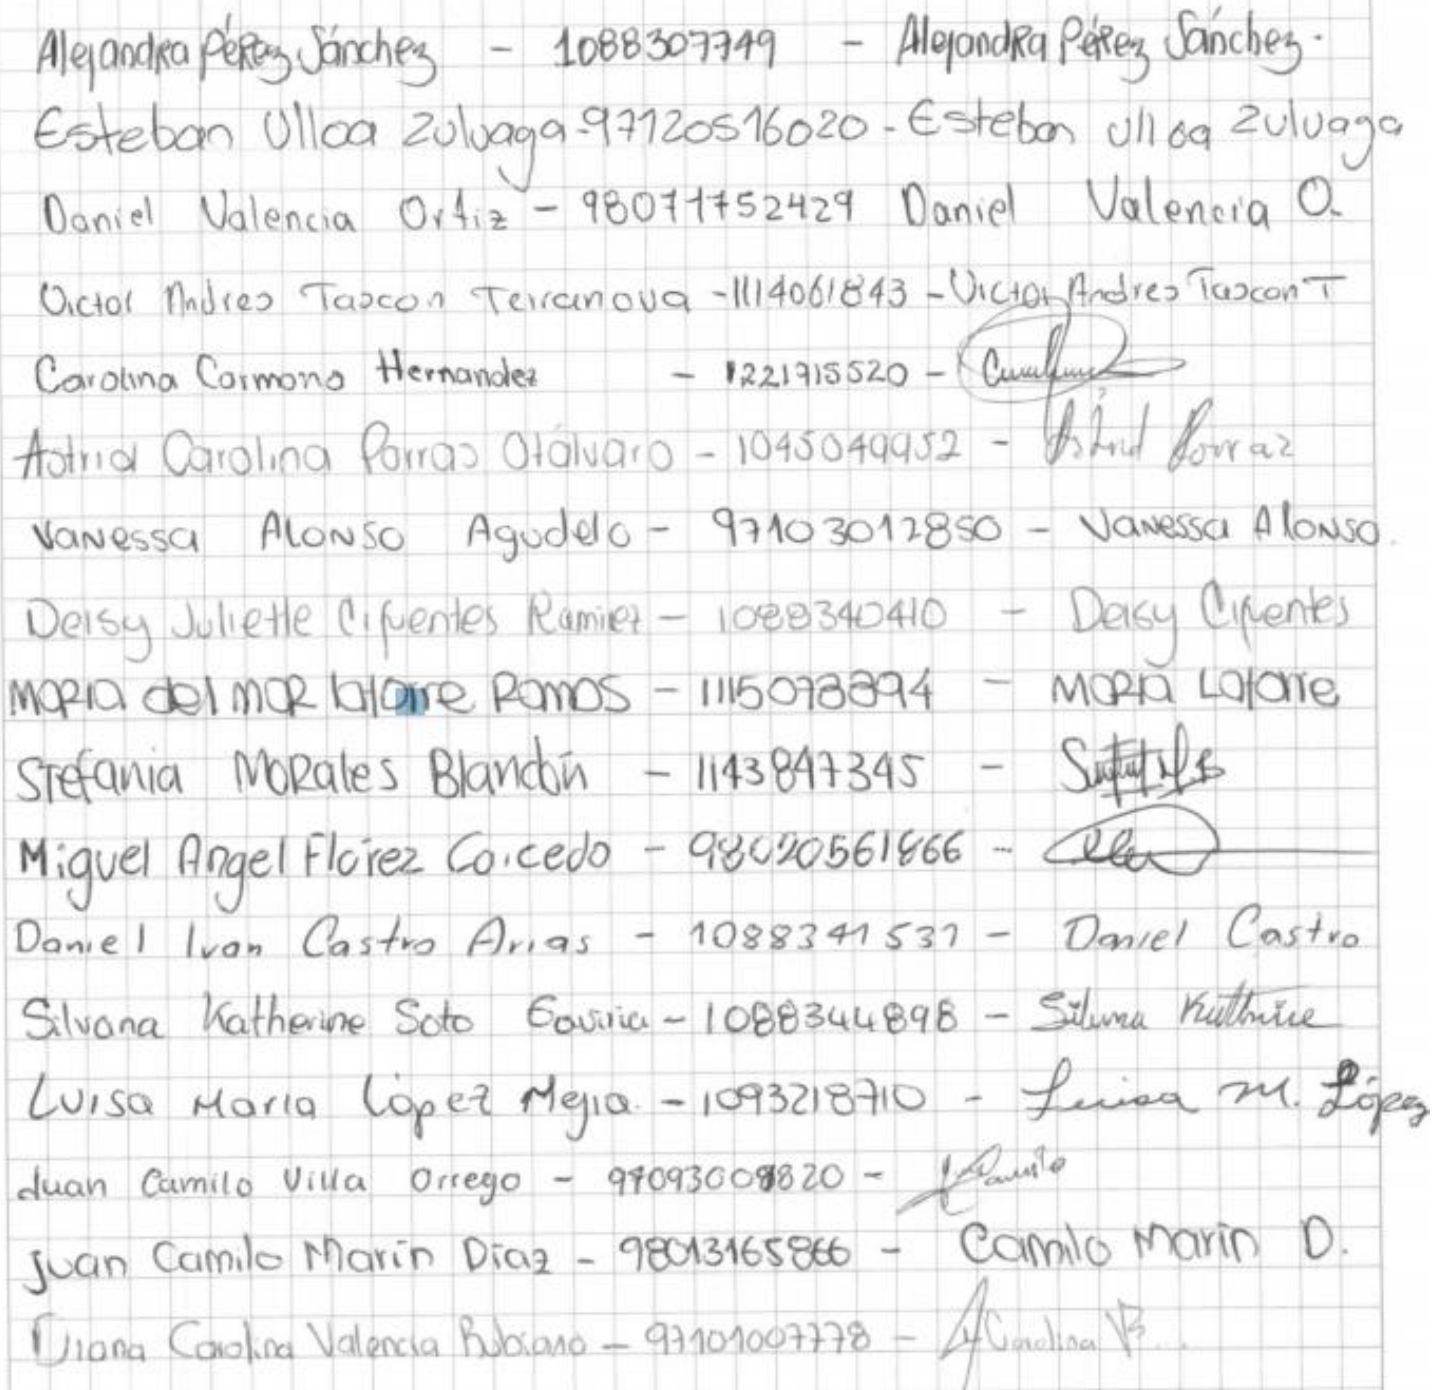 Alejandra Pérez Sánchez - 1088307749 - Alejandra Pérez Sánchez.
Esteban Ulloa Zuluaga - 97120516020 - Esteban Ulloa Zuluaga
Daniel Valencia Ortiz - 98071752429 Daniel Valencia O.
Victor Andres Tascon Terranova - 1114061843 - Victor Andres Tascon T
Carolina Carmona Hernandez - 1221715520 -
Astrid Carolina Porras Otálvaro - 1045049952 - Astrid Porraz
Vanessa Alonso Agudelo - 97103012850 - Vanessa Alonso.
Deisy Juliette Cifuentes Ramirez - 1088340410 - Deisy Cifuentes
Maria del mar latorre Ramos - 1115078894 - Maria Latorre
Stefania Morales Blandón - 1143847345 -
Miguel Angel Florez Caicedo - 98020561866 -
Daniel Ivan Castro Arias - 1088341531 - Daniel Castro
Silvana Katherine Soto Gaviria - 1088344898 - Silvana Katherine
Luisa Maria López Mejia. - 1093218710 - Luisa M. López
Juan Camilo Villa Orrego - - Camilo
Juan Camilo Marín Díaz - 98013165866 - Camilo Marín D.
Diana Carolina Valencia Rubiano - 97101007778 - Carolina V